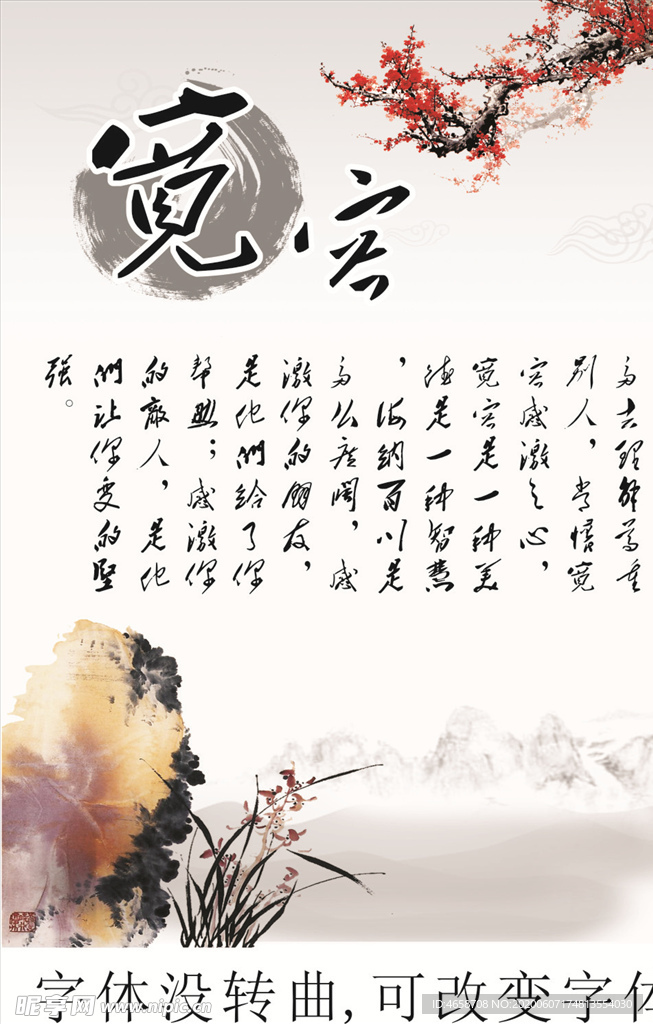 宽容
多去理解尊重
别人，常悟宽
容感激之心，
宽容是一种美
德是一种智慧
，海纳百川是
多么广阔，感
激你的朋友，
是他們给了你
帮助；感激你
的敌人，是他
們让你变的坚
强。
字体没转曲,可改变字体
昵享网 www.nipic.cn
ID:4658708 NO:20200607174813554030